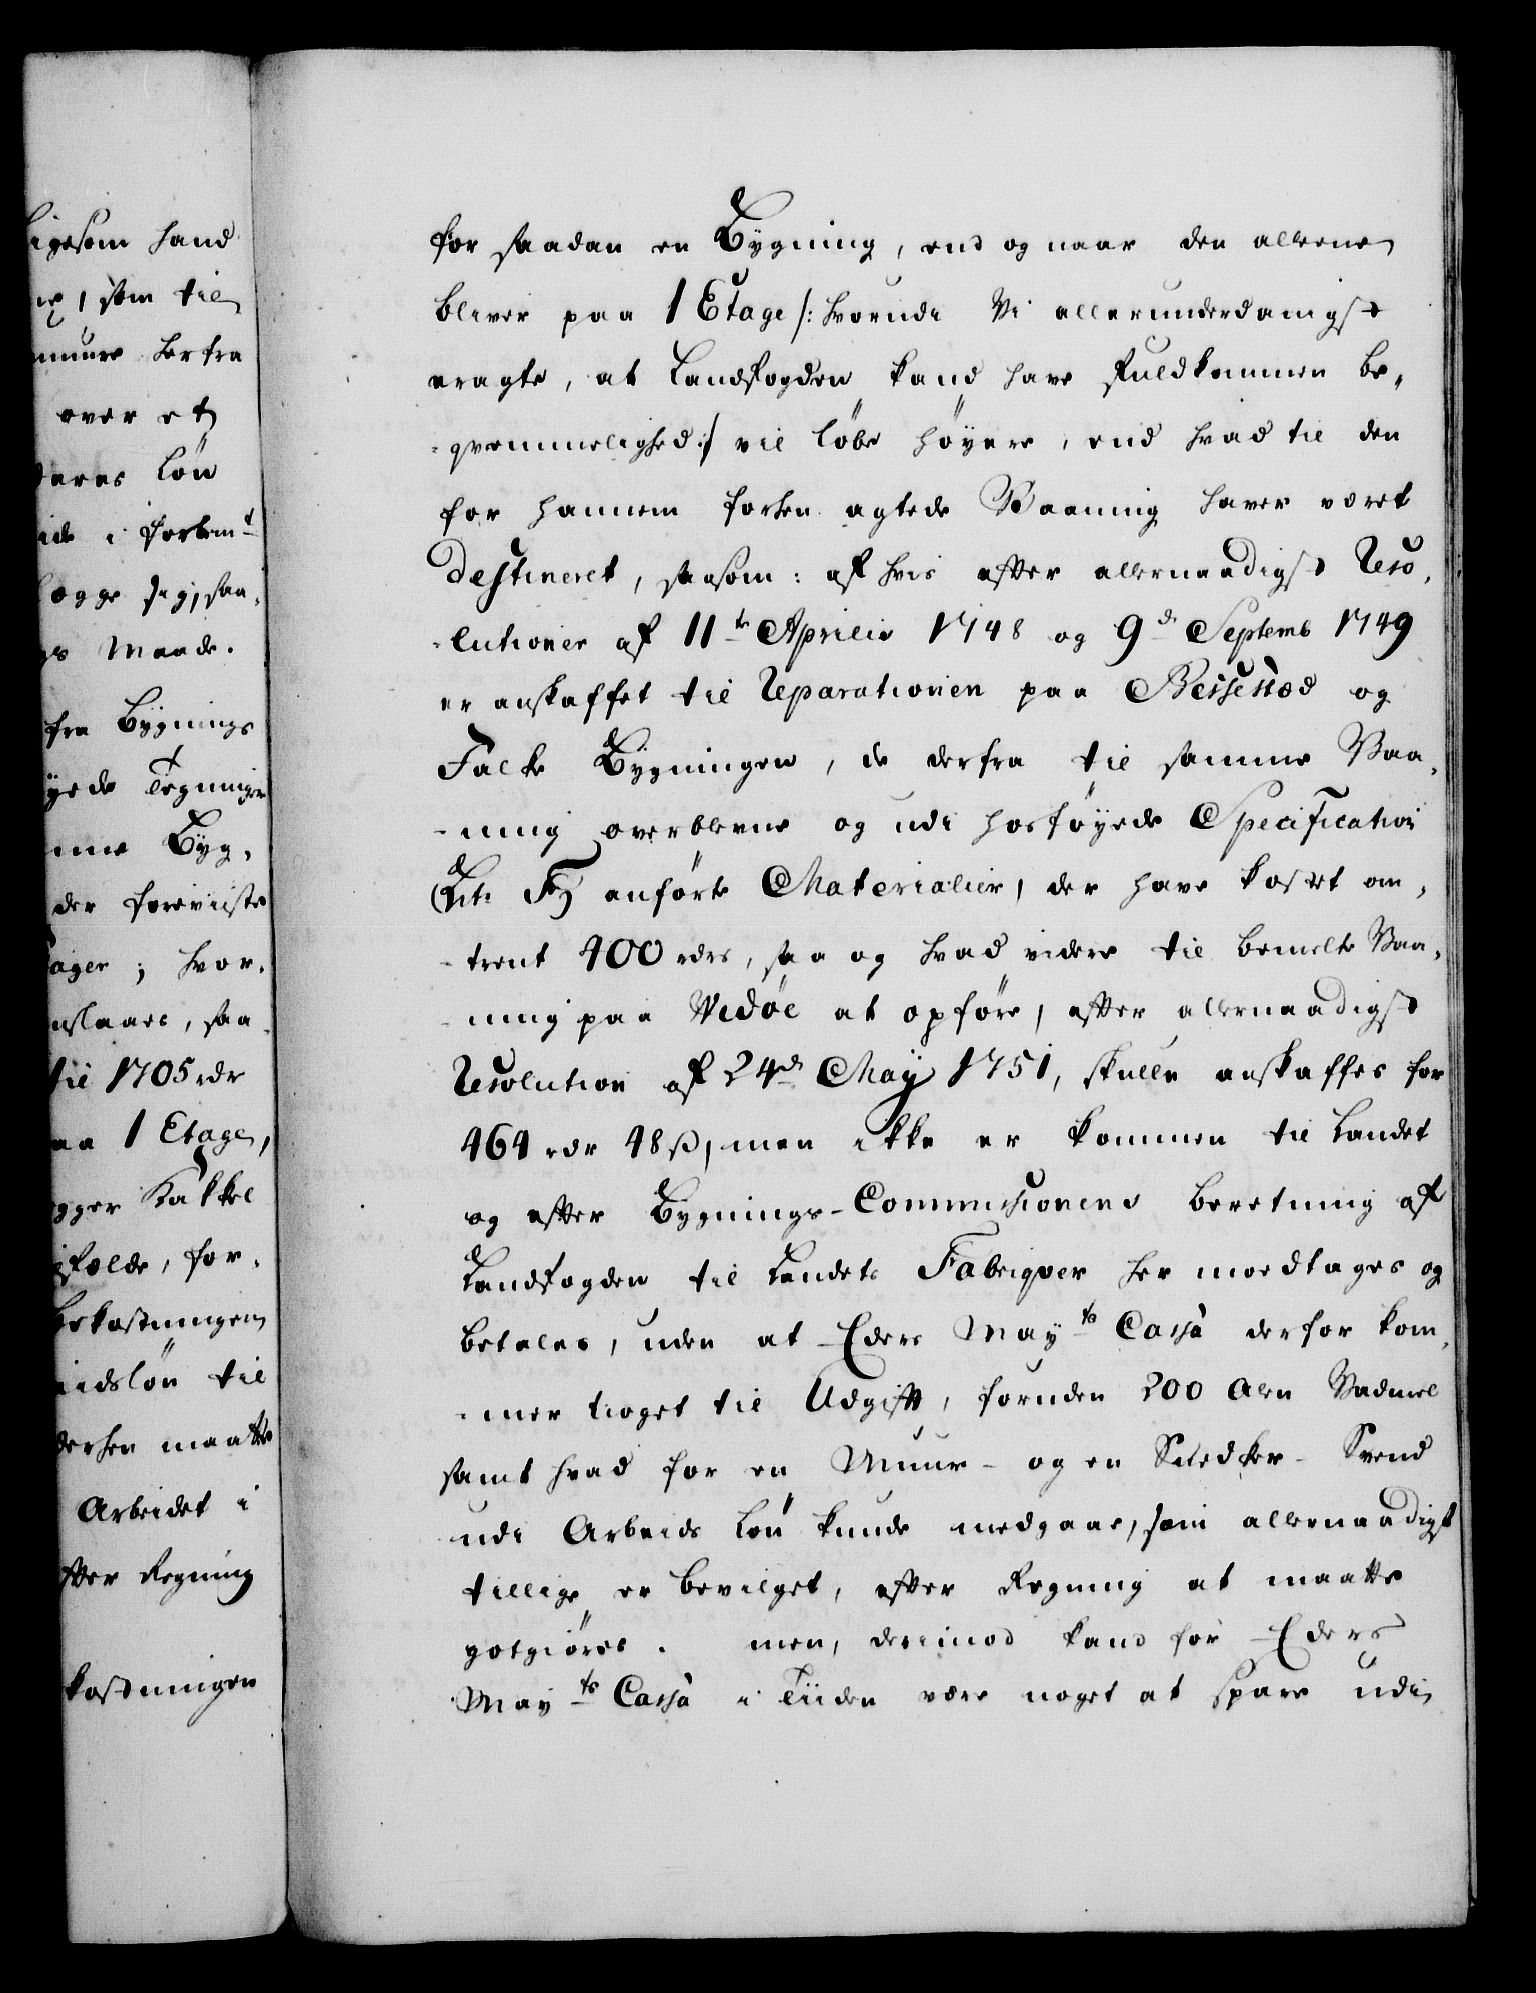 igesom hand
som til
muure herfra
over et
deres Løn
ide i forbemt
lægge sig, saa-
gs Maade.
fra Bygnings
yede Tegninger
nne Byg-
der foreviiste
ager; hvor-
nslaaes, saa
til 1705 rdr
aa 1 Etage,
gger Kakkel
fælde, for-
bekostningen
iidsløn til
dersen maatte
Arbeidet i
fter Regning
kostningen
for saadan en Bygning, end og naar den alleene
bliver paa 1 Etage /: hvorudi Vi allerunderdanigst
eragte, at Landfogden kand have fuldkommen be-
-qvemmelighed :/ vil løbe høyere, end hvad til den
for hannem forhen agtede Vaaning haver været
destineret, saasom: af hvis efter allernaadigst Reso-
-lutioner af 11te Aprilis 1748 og 9de Septemb 1749
er anskaffet til Reparationen paa Bessested og
Falke Bygningen, de derfra til samme Vaa-
-ning overblevne og udi hosføyede Specification
(Lit: F) anførte Materialier, der have kostet om-
-trent 400 rdrs, saa og hvad videre til bemelte Vaa-
-ning paa Widøe at opføre, efter allernaadigst
Resolution af 24de May 1751, skulle anskaffes for
464 rdr 48 ß, men ikke er kommen til Landet
og efter Bygnings-Commissionens beretning af
Landfogden til Landets Fabriqver her modtages og
betales, uden at Eders Mayts Cassa derfor kom-
-mer noget til Udgift, foruden 200 Alen Vadmel
samt hvad for en Muur- og en Snedker-Svend
udi Arbeids Løn kunde medgaae, som allernaadigst
tillige er bevilget, efter Regning at maatte
gotgiøres. men, derimod kand for Eders
Mayts Cassa i Tiiden være noget at spare udi